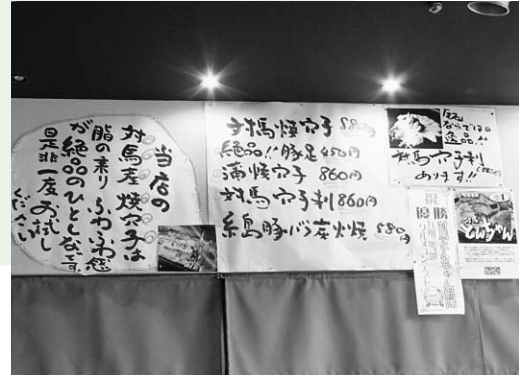 当店の
対馬産焼穴子は
脂の来り ふわふわ感
が絶品のひとしなです。
是非一度お試し
ください
対馬焼穴子 880円
絶品!!豚足 450円
蒲焼穴子 860円
対馬穴子刺 860円
糸島豚バラ炭火焼 580円
ならではの
逸品!!
対馬穴子刺
あります!!
優勝
とんちゃん